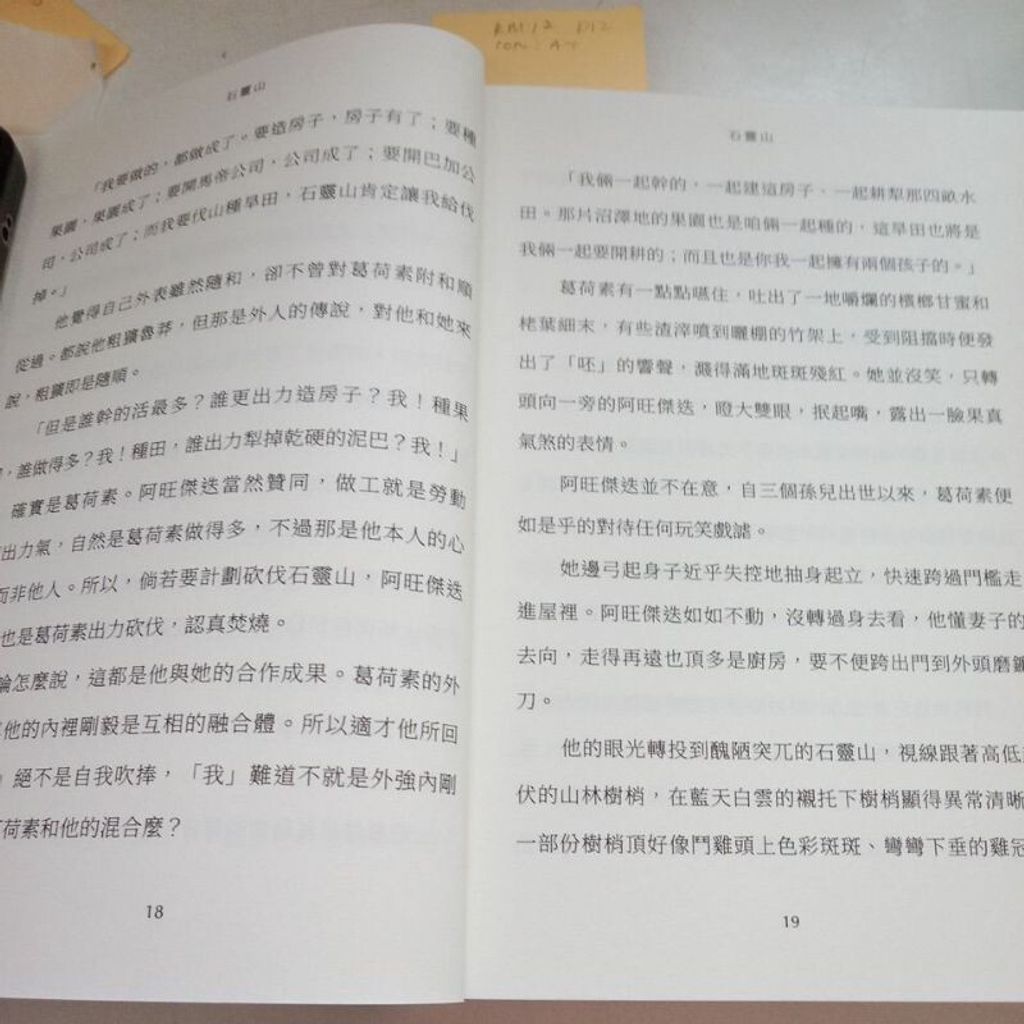 石靈山
「我要做的，都做成了。要造房子，房子有了；要種
果園，果園成了；要開馬帝公司，公司成了；要開巴加公
司，公司成了；而我要伐山種旱田，石靈山肯定讓我給伐
掉。」
他覺得自己外表雖然隨和，卻不曾對葛荷素附和順
從過。都說他粗獷魯莽，但那是外人的傳說，對他和她來
說，粗獷即是隨順。
「但是誰幹的活最多？誰更出力造房子？我！種果
，誰做得多？我！種田，誰出力犁掉乾硬的泥巴？我！」
確實是葛荷素。阿旺傑迭當然贊同，做工就是勞動
出力氣，自然是葛荷素做得多，不過那是他本人的心
而非他人。所以，倘若要計劃砍伐石靈山，阿旺傑迭
也是葛荷素出力砍伐，認真焚燒。
論怎麼說，這都是他與她的合作成果。葛荷素的外
他的內裡剛毅是互相的融合體。所以適才他所回
」絕不是自我吹捧，「我」難道不就是外強內剛
荷素和他的混合麼？
18
石靈山
「我倆一起幹的，一起建這房子、一起耕犁那四畝水
田。那片沼澤地的果園也是咱倆一起種的，這旱田也將是
我倆一起要開耕的；而且也是你我一起擁有兩個孩子的。」
葛荷素有一點點噎住，吐出了一地嚼爛的檳榔甘蜜和
栳葉細末，有些渣滓噴到曬棚的竹架上，受到阻擋時便發
出了「呸」的響聲，濺得滿地斑斑殘紅。她並沒笑，只轉
頭向一旁的阿旺傑迭，瞪大雙眼，抿起嘴，露出一臉果真
氣煞的表情。
阿旺傑迭並不在意，自三個孫兒出世以來，葛荷素便
如是乎的對待任何玩笑戲謔。
她邊弓起身子近乎失控地抽身起立，快速跨過門檻走
進屋裡。阿旺傑迭如如不動，沒轉過身去看，他懂妻子的
去向，走得再遠也頂多是廚房，要不便跨出門到外頭磨鐮
刀。
他的眼光轉投到醜陋突兀的石靈山，視線跟著高低
伏的山林樹梢，在藍天白雲的襯托下樹梢顯得異常清晰
一部份樹梢頂好像鬥雞頭上色彩斑斑、彎彎下垂的雞冠
19